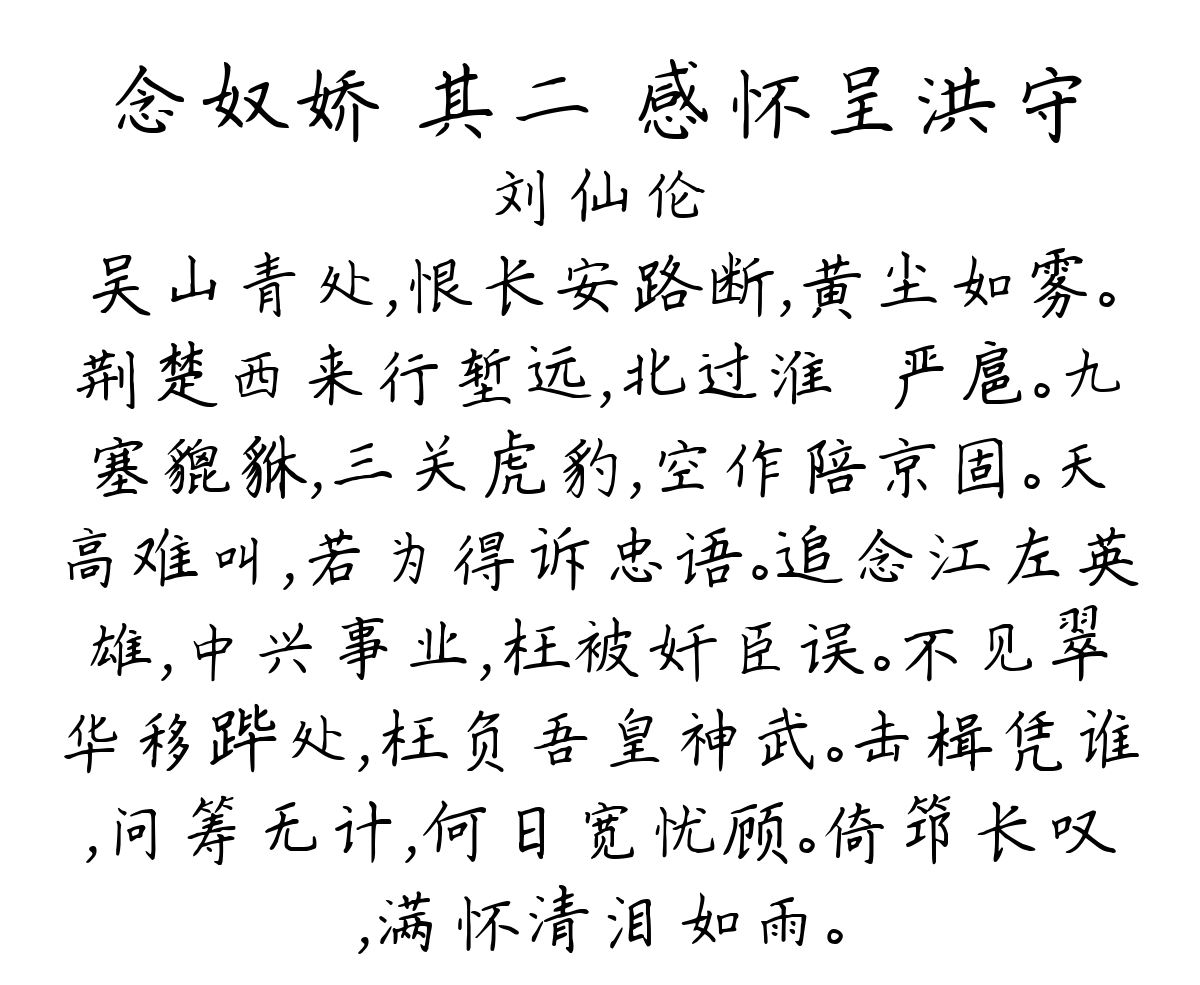 念奴娇 其二 感怀呈洪守
刘仙伦
吴山青处,恨长安路断,黄尘如雾。
荆楚西来行堑远,北过淮 严扈。九
塞貔貅,三关虎豹,空作陪京固。天
高难叫,若为得诉忠语。追念江左英
雄,中兴事业,枉被奸臣误。不见翠
华移跸处,枉负吾皇神武。击楫凭谁
,问筹无计,何日宽忧顾。倚筇长叹
,满怀清泪如雨。